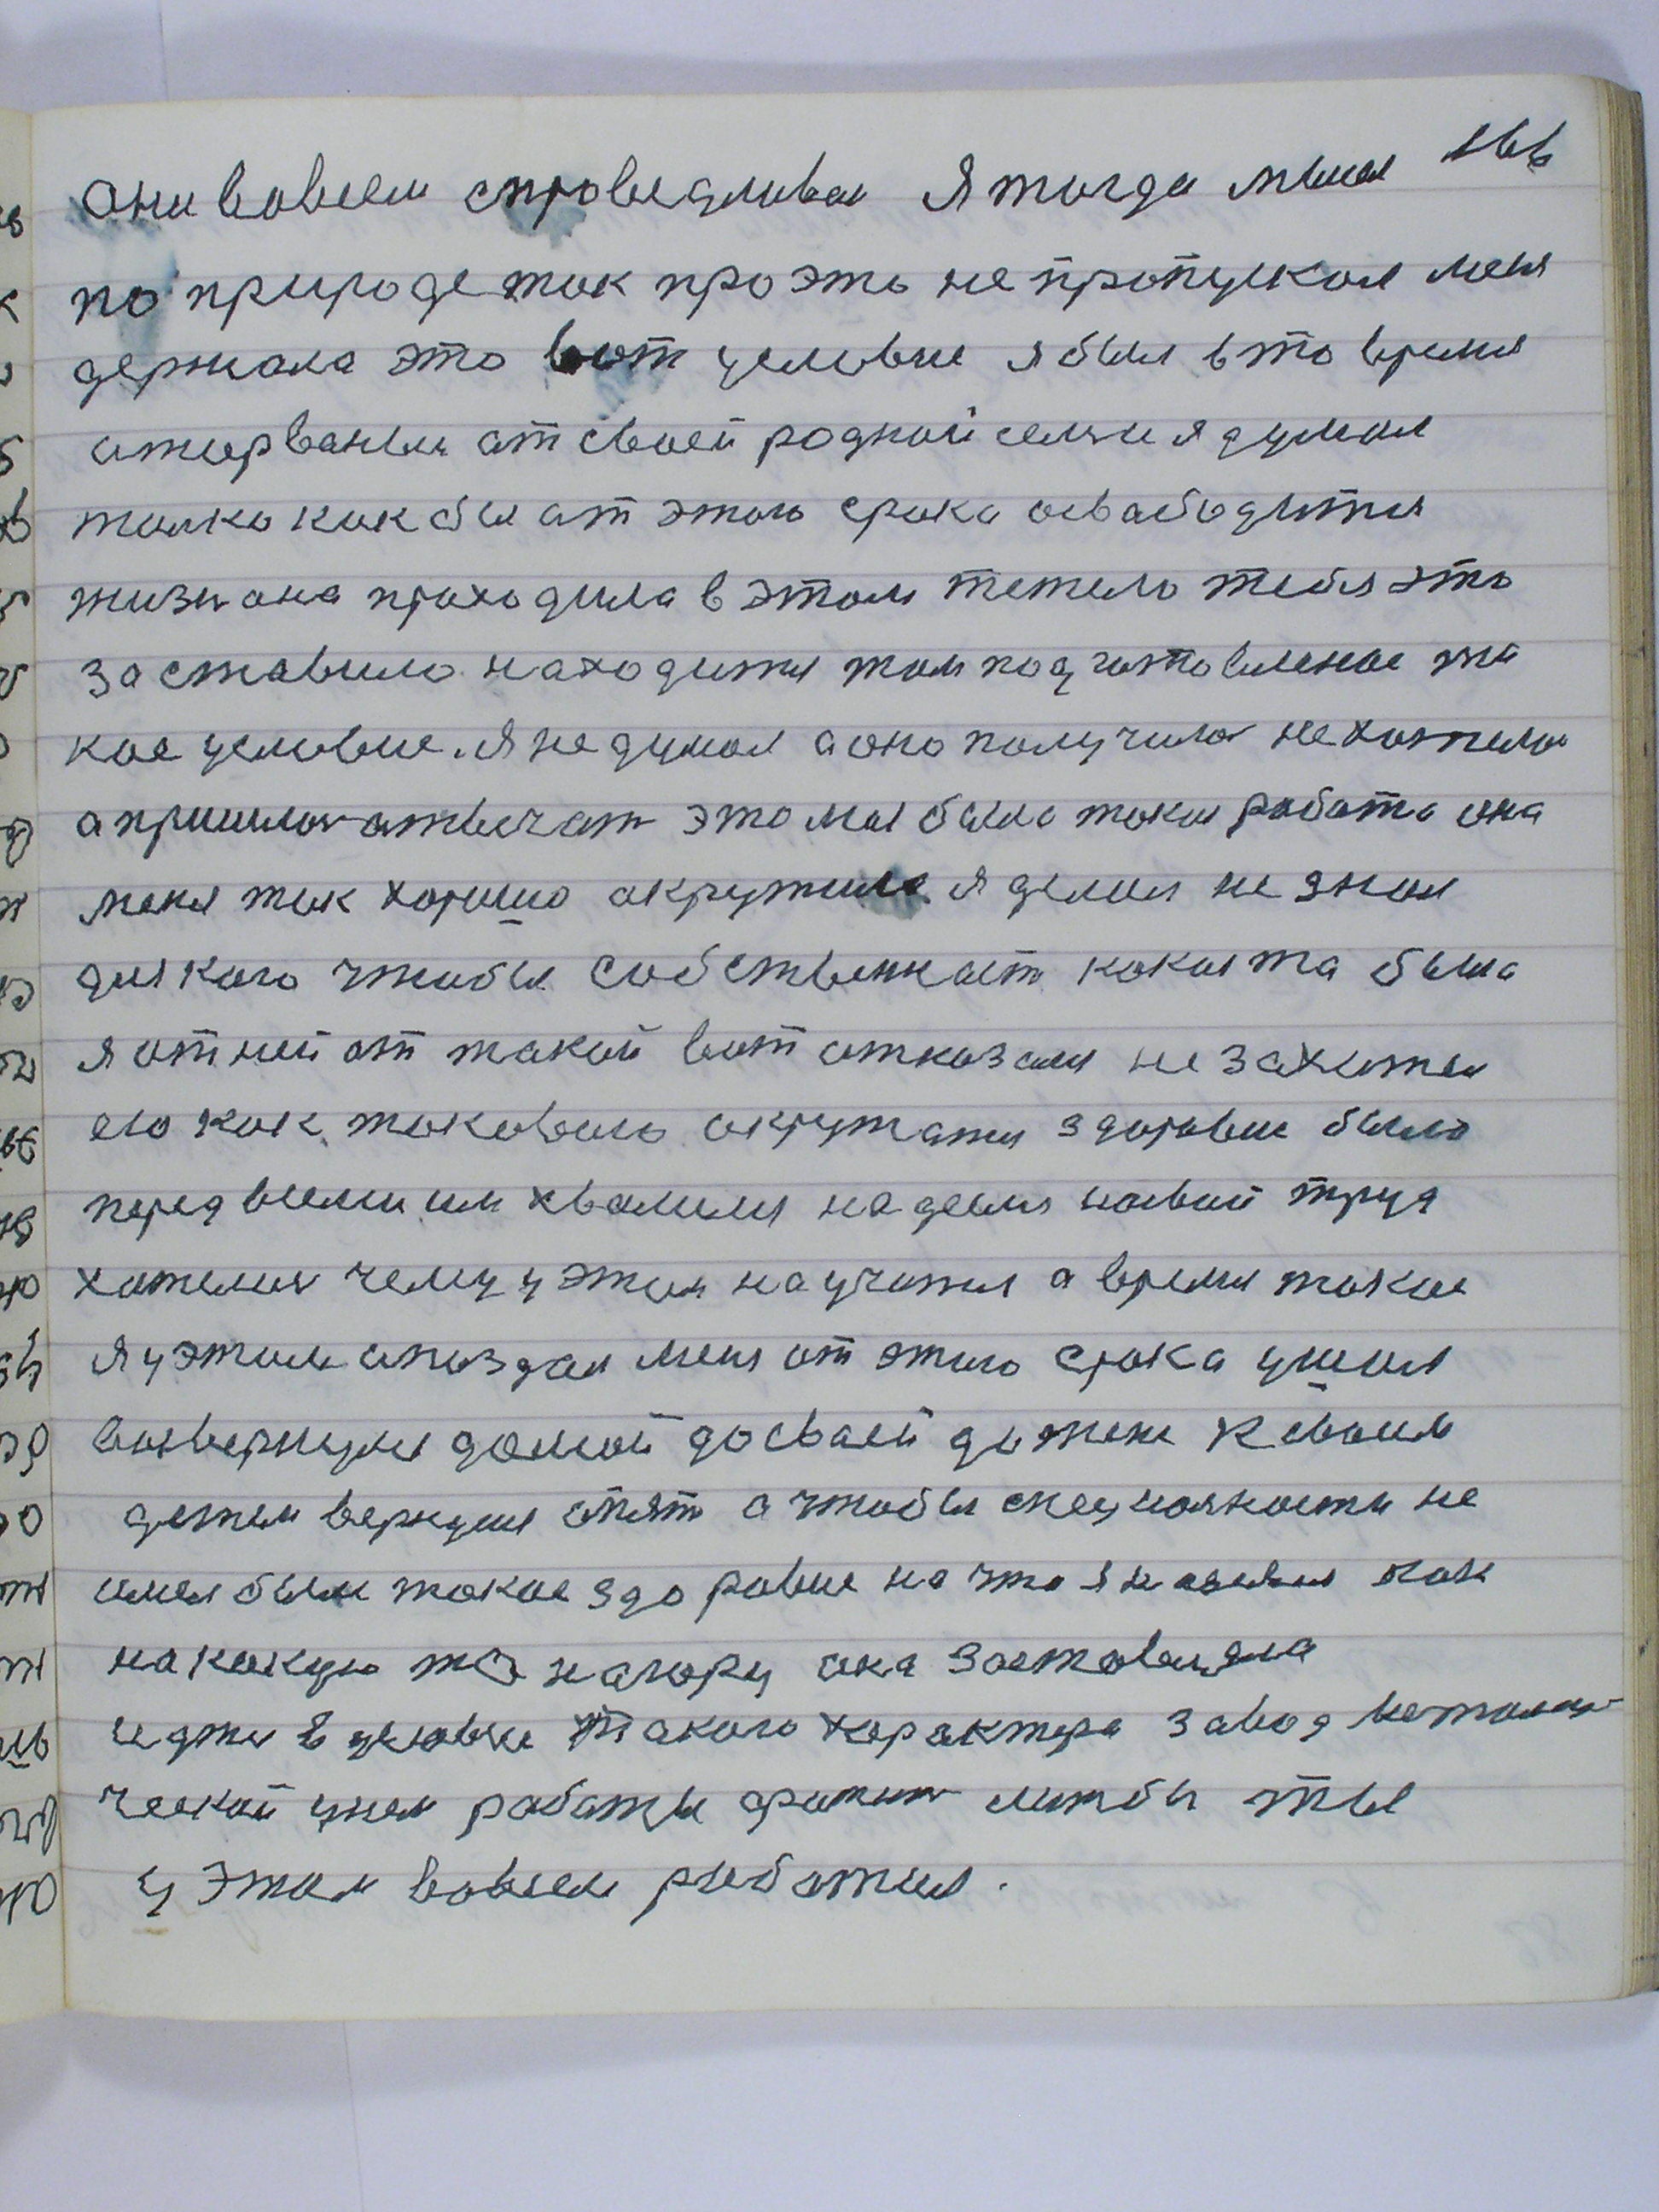 166
они вовсем справедливы Я тогда мыся
по природе так про это не пропускал меня
держала это вот условие я был в то время
атарваным ат своей родной семьи я думал
толко как бы ат этого срока освабодится
жизн она праходила в этом тежело тебя это
заставило находится там подготовленое та
кое условие. Я не думал а оно получилос не хотелос
а пришлос атвечат это моя была такая работа она
меня так хорошо акружила я делал не знал
для кого чтобы собственаст какая та была
я от ней от такой вот отказался не захотел
его как таковога акружатся здоровие было
перед всеми им хвалился наделся новый труд
хотелос чему у этим научится а время такое
я у этим апоздал меня от этого срока ушол
вазвернулся домой до сваей до жене к своим
детям вернулся опят а чтобы специалности не
имел были такое здоровие на что я надеялся как
на какую та нагору она заставляла
идти в условие такого характера завод метали
ческой цехи работы литбы ты
у этом вовсем работил.